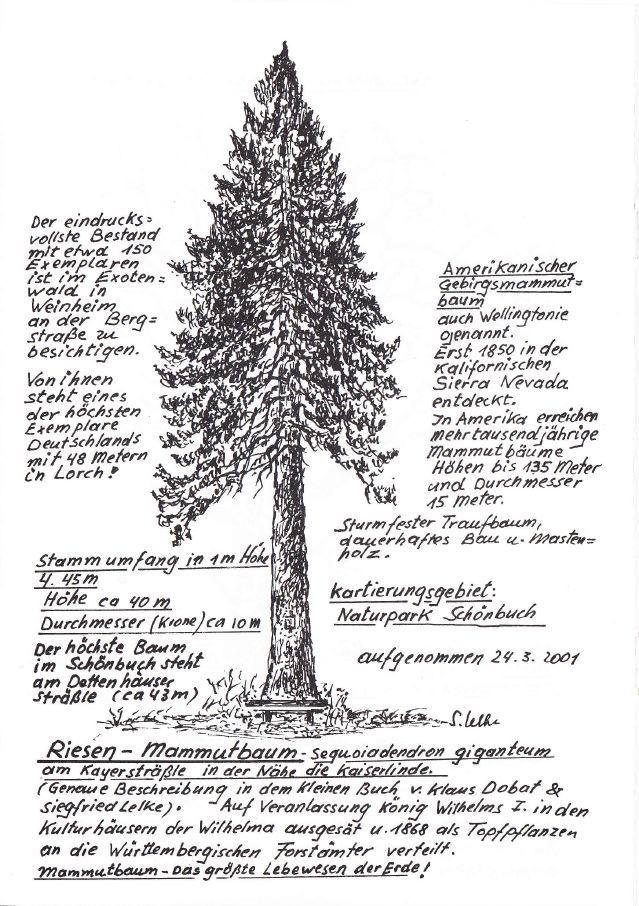 Der eindrucks=
vollste Bestand
mit etwa 150
Exemplaren
ist im Exoten=
wald in
Weinheim
an der Berg=
straße zu
besichtigen.
Von ihnen
steht eines
der höchsten
Exemplare
Deutschlands
mit 48 Metern
in Lorch!
Amerikanischer
Gebirgsmammut=
baum
auch Wellingtonie
genannt.
Erst 1850 in der
Kalifornischen
Sierra Nevada
entdeckt.
In Amerika erreichen
mehrtausendjährige
Mammutbäume –
Höhen bis 135 Meter
und Durchmesser
15 Meter.
Sturmfester Traufbaum,
dauerhaftes Bau u. Masten=
holz.
Stammumfang in 1m Höhe
4.45m
Höhe ca 40 m
Durchmesser (Krone) ca 10m
Der höchste Baum
im Schönbuch steht
am Dettenhäuser
Sträßle (ca 43m)
Kartierungsgebiet:
Naturpark Schönbuch
aufgenommen 24.3.2001
S. Lelke
Riesen – Mammutbaum – Sequoiadendron giganteum
am Kayersträßle in der Nähe die Kaiserlinde.
(Genaue Beschreibung in dem kleinen Buch v. Klaus Dobat &
Siegfried Lelke). – Auf Veranlassung König Wilhelms I. in den
Kulturhäusern der Wilhelma ausgesät u. 1868 als Topfpflanzen
an die Württembergischen Forstämter verteilt.
Mammutbaum – Das größte Lebewesen der Erde!